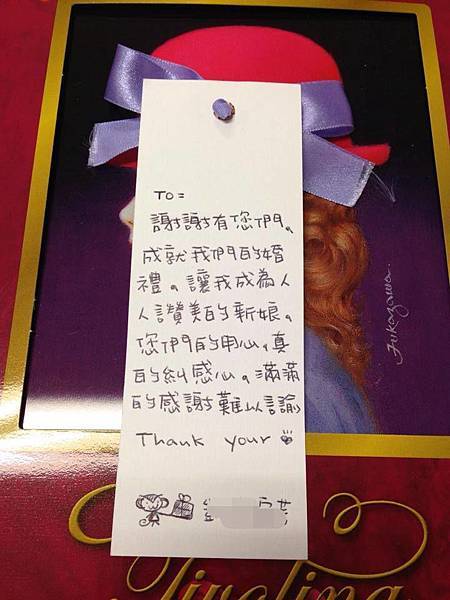 Fukazawa.
TO=
謝謝有您們、
成就我們的婚
禮。讓我成為人
人讚美的新娘。
您們的用心,真
的糾感心。滿滿
的感謝難以諭
Thank your